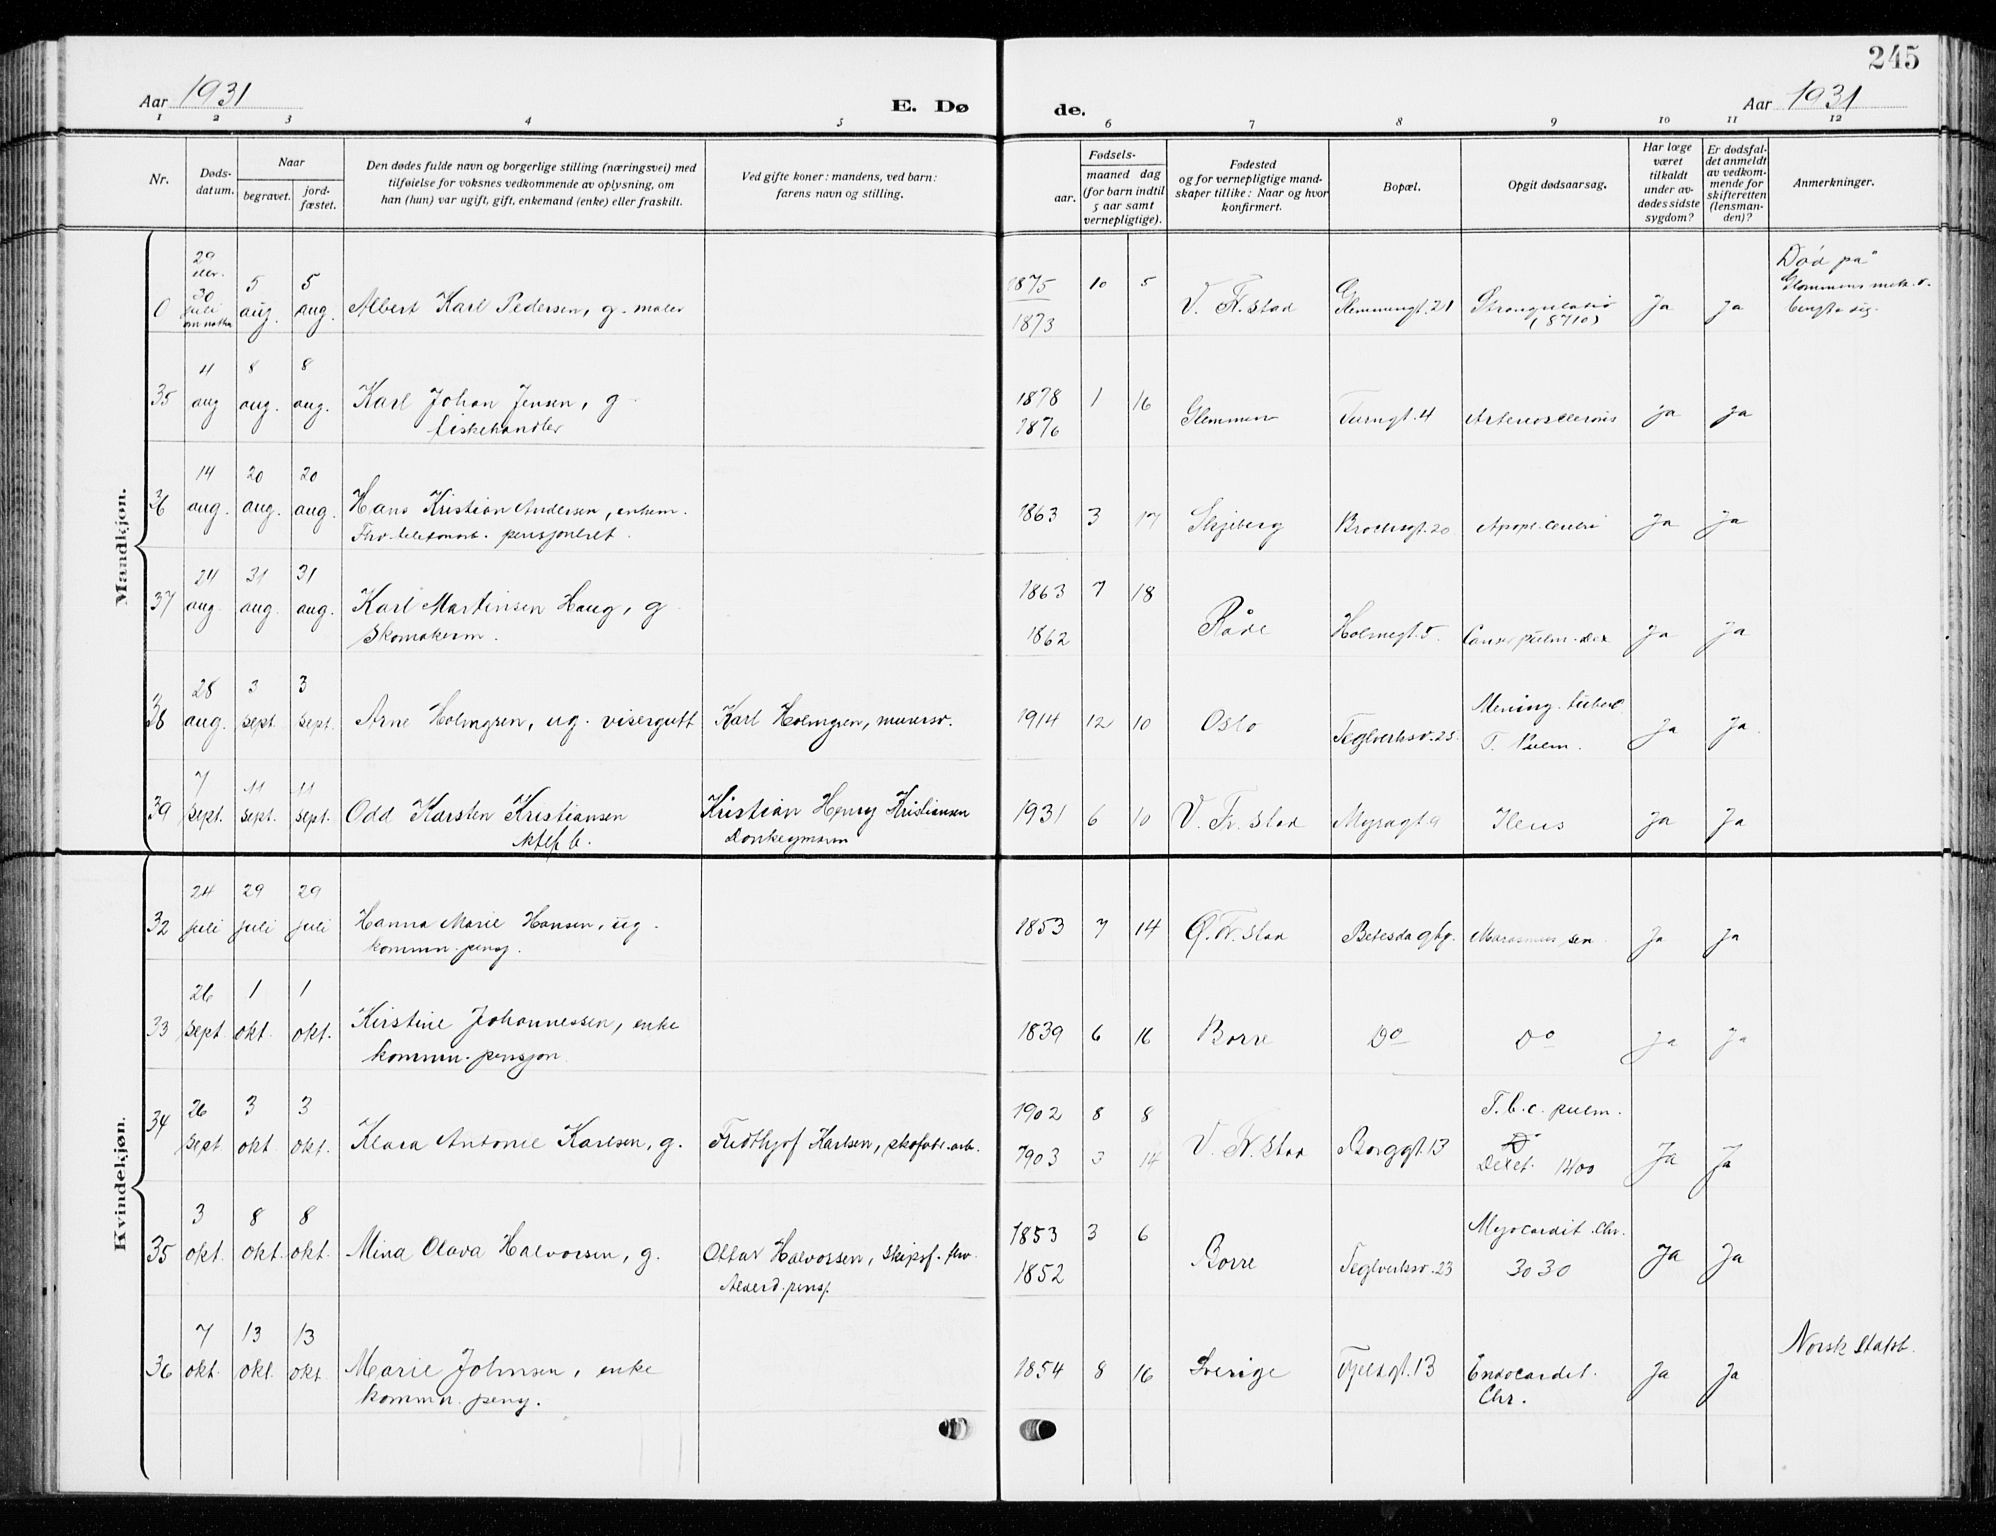 245
Aar 1931
E. Dø
de.
Aar 1931
1 2 3 4 5 6 7 8 9 10 11 12
Nr.
Døds-
datum.
Naar
begravet.
jord-
fæstet.
Den dødes fulde navn og borgerlige stilling (næringsvei) med
tilføielse for voksnes vedkommende av oplysning, om
han (hun) var ugift, gift, enkemand (enke) eller fraskilt.
Ved gifte koner: mandens, ved barn:
farens navn og stilling.
Fødsels-
aar.
maaned dag
(for barn indtil
5 aar samt
vernepligtige).
Fødested
og for vernepligtige mand-
skaper tillike: Naar og hvor
konfirmert.
Bopæl.
Opgit dødsaarsag.
Har læge
været
tilkaldt
under av-
dødes sidste
sygdom?
Er dødsfal-
det anmeldt
av vedkom-
mende for
skifteretten
(lensman-
den)?
Anmerkninger.
Mandkjøn.
29
30 5 5 1875 10 5 Død på
0 juli aug. aug. Albert Karl Pedersen, g. maler V. Fr.stad Glemmengt. 21 Strangulatio Ja Ja Glommens mek. v.
1873 (8710)
4 8 8
35 aug aug. aug. Karl Johan Jensen, g. 1878 1 16 Glemmen Turngt. 4 Arteriosclerosis ja ja
fiskehandler 1876
14 20 20
36 aug. aug. aug. Hans Kristian Andersen, enkem. 1863 3 17 Skjeberg Brochsgt. 20 Apopl. cerebri Ja Ja
Fhv. telefonarb. pensjonert.
24 31 31 1863 7 18
37 aug. aug. aug. Karl Martinsen Haug, g Råde Holmegt. 5. Cancer pulm. dex Ja Ja
Skomakerm. 1862
28 3 3 Mening. tuberc
38 aug. sept. sept. Arne Holmgren, ug. visergutt Karl Holmgren, murersv. 1914 12 10 Oslo Teglverksv. 25. T. Pulm. Ja Ja
7 11 11
39 sept. sept. sept. Odd Karsten Kristiansen Kristian Henry Kristiansen 1931 6 10 V. Fr.stad Myragt 9 Ileus Ja Ja
Donkeymann
Kvindekjøn.
24 29 29
32 juli juli juli Hanna Marie Hansen, ug. 1853 7 14 Ø. Fr.stad Betesda glhj. Marasmus sen. Ja Ja
kommn. pensj.
26 1 1
33 sept okt. okt. Kirstine Johannessen, enke 1839 6 16 Borre Do Do Ja Ja
kommn. pensjon
26 3 3 1902 8 8 T.b.c. pulm.
34 sept okt. okt. Klara Antonie Karlsen, g. Fridthjof Karlsen, skofabr. arb. V. Fr.stad Borggt. 13 Ja Ja
1903 3 14 Dexet. 1400
3 8 8 1853 3 6 Myocardit. Chr.
35 okt. okt. okt. Mina Olava Halvorsen, g. Ottar Halvorsen, skipsf. fhv. Borre Teglverksv. 23 3030 Ja Ja
Alderd. pensj. 1852
7 13 13 Norsk statsb.
36 okt. okt. okt Marie Johnsen, enke 1854 8 16 Sverige Fjeldgt. 13 Endocardit. Ja Ja
kommn. pensj. Chr.